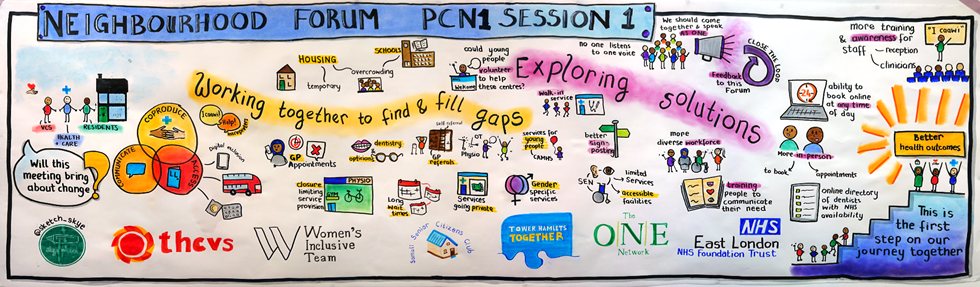 NEIGHBOURHOOD FORUM PCN1 SESSION 1
VCS
HEALTH
+ CARE
RESIDENTS
Will this
meeting bring
about change?
COPRODUCE
COMMUNICATE
ACCESS
Help!
Digital exclusion
Working together to find & fill
gaps
HOUSING
temporary
overcrowding
SCHOOL
could young
people
volunteer
to help
these centres?
Welcome
GP
Appointments
dentistry
opticians
self-referral
GP
referrals
OT
Physio
services for
young
people
CAMHS
closure
limiting
service
provision
PHYSIO
Long
wait
times
Services
going private
Gender
specific
services
Exploring
solutions
no one listens
to one voice
We should come
together & speak
AS ONE
Feedback
to this
Forum
CLOSE THE LOOP
walk-in
service
better
sign-
posting
SEN
limited
Services
accessible
facilities
more
diverse workforce
training
people to
communicate
their need
24
ability to
book online
at any time
of day
More in-person
to book
appointments
online directory
of dentists
with NHS
availability
more training
& awareness for
staff
reception
clinicians
Better
health outcomes
This is
the first
step on our
journey together
@sketch_skye
thcvs
W
Women's
Inclusive
Team
Senior Citizens Club
TOWER HAMLETS
TOGETHER
The
ONE
Network
NHS
East London
NHS Foundation Trust